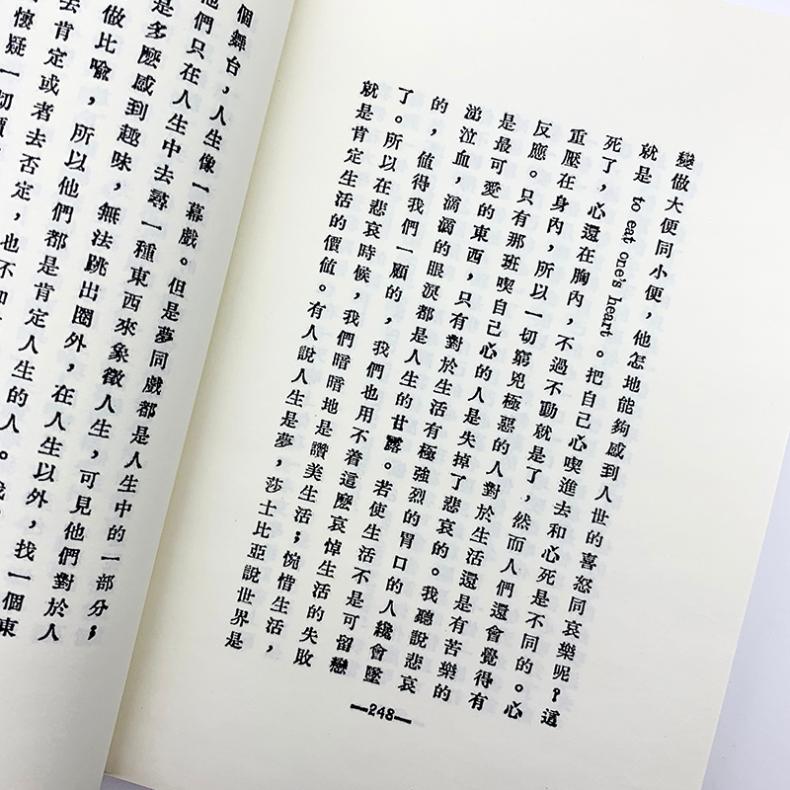 變做大便同小便，他怎地能夠感到人世的喜怒同哀樂呢？這
就是 to eat one's heart 。把自己心喫進去和心死是不同的。心
死了，心還在胸內，不過不動就是了，然而人們還會覺得有
重壓在身內，所以一切窮兇極惡的人對於生活還是有苦樂的
反應。只有那班喫自己心的人是失掉了悲哀的。我聽說悲哀
是最可愛的東西，只有對於生活有極強烈的胃口的人纔會墜
涕泣血，滴滴的眼淚都是人生的甘露。若使生活不是可留戀
的，值得我們一顧的，我們也用不着這麽哀悼生活的失敗
了。所以在悲哀時候，我們暗暗地是讚美生活；惋惜生活，
就是肯定生活的價值。有人說人生是夢，莎士比亞說世界是
—248—
個舞台，人生像一幕戲。但是夢同戲都是人生中的一部分；
他們只在人生中去尋一種東西來象徵人生，可見他們對於人
是多麽感到趣味，無法跳出圈外，在人生以外，找一個東
做比喩，所以他們都是肯定人生的人。
去肯定或者去否定，也不
懷疑一切